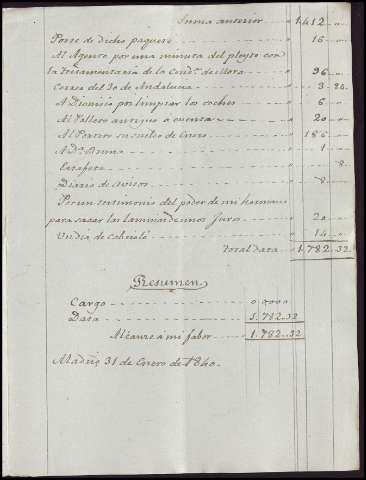 Suma anterior - - - " 1.412 " "
Porte de dicho paquete - - - " 16 - "
Al Agente por una minuta del pleyto con
la testamentaría de la Cond.ª de Mora - - " 96 - "
Correo del 30 de Andalucia - - - " 3 - 24.
A Dionisio por limpiar los coches - - " 6 - "
Al Pellero antiguo a cuenta - - - " 20 - "
Al Portero su sueldo de Enero - - - " 186 - "
A D.ª Bruna - - - " 1 - "
Estafeta - - - " " - 8.
Diario de avisos - - - " 8 - "
Por un testimonio del poder de mi hermano
para sacar las laminas de unos Juros - - " 20 - "
Un dia de cabriolé - - - " 14 - "
Total data - - " 1.782 . 32.
Resumen
Cargo - - - 0,0000
Data - - - 1.782..32
Alcance á mi fabor - - 1.782..32
Madrid 31 de Enero de 1840.